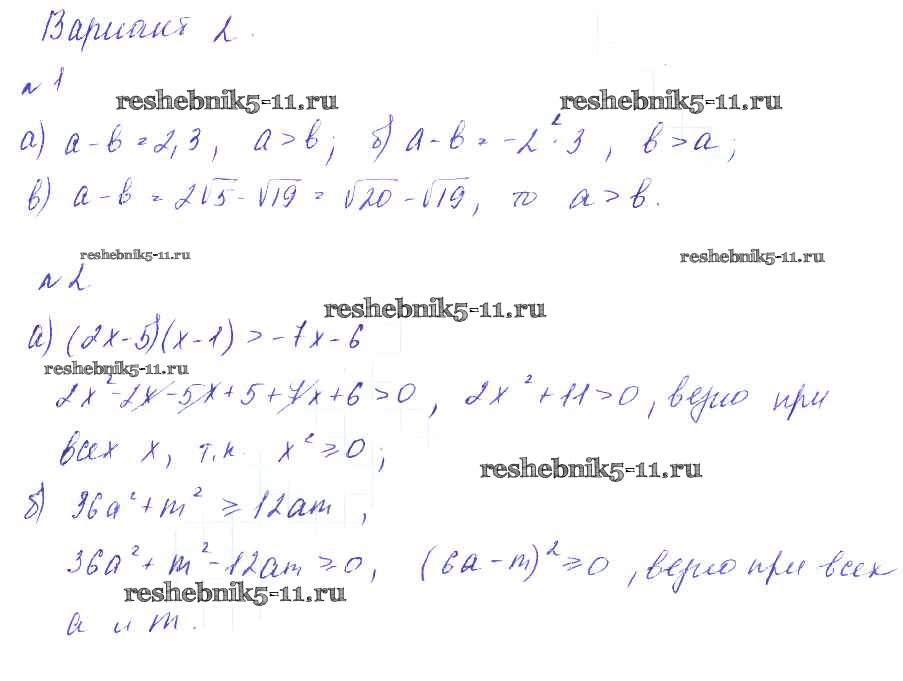 Вариант 2.
№ 1
reshebnik5-11.ru reshebnik5-11.ru
а) a-b=2,3, a>b; б) a-b=-2²·3, b>a;
в) a-b=2√5-√19=√20-√19, то a>b.
reshebnik5-11.ru reshebnik5-11.ru
№ 2
reshebnik5-11.ru
а) (2x-5)(x-1)>-7x-6
reshebnik5-11.ru
2x²-2x-5x+5+7x+6>0, 2x²+11>0, верно при
всех x, т.к. x²⩾0;
reshebnik5-11.ru
б) 36a²+m²⩾12am,
36a²+m²-12am⩾0, (6a-m)²⩾0, верно при всех
reshebnik5-11.ru
a и m.